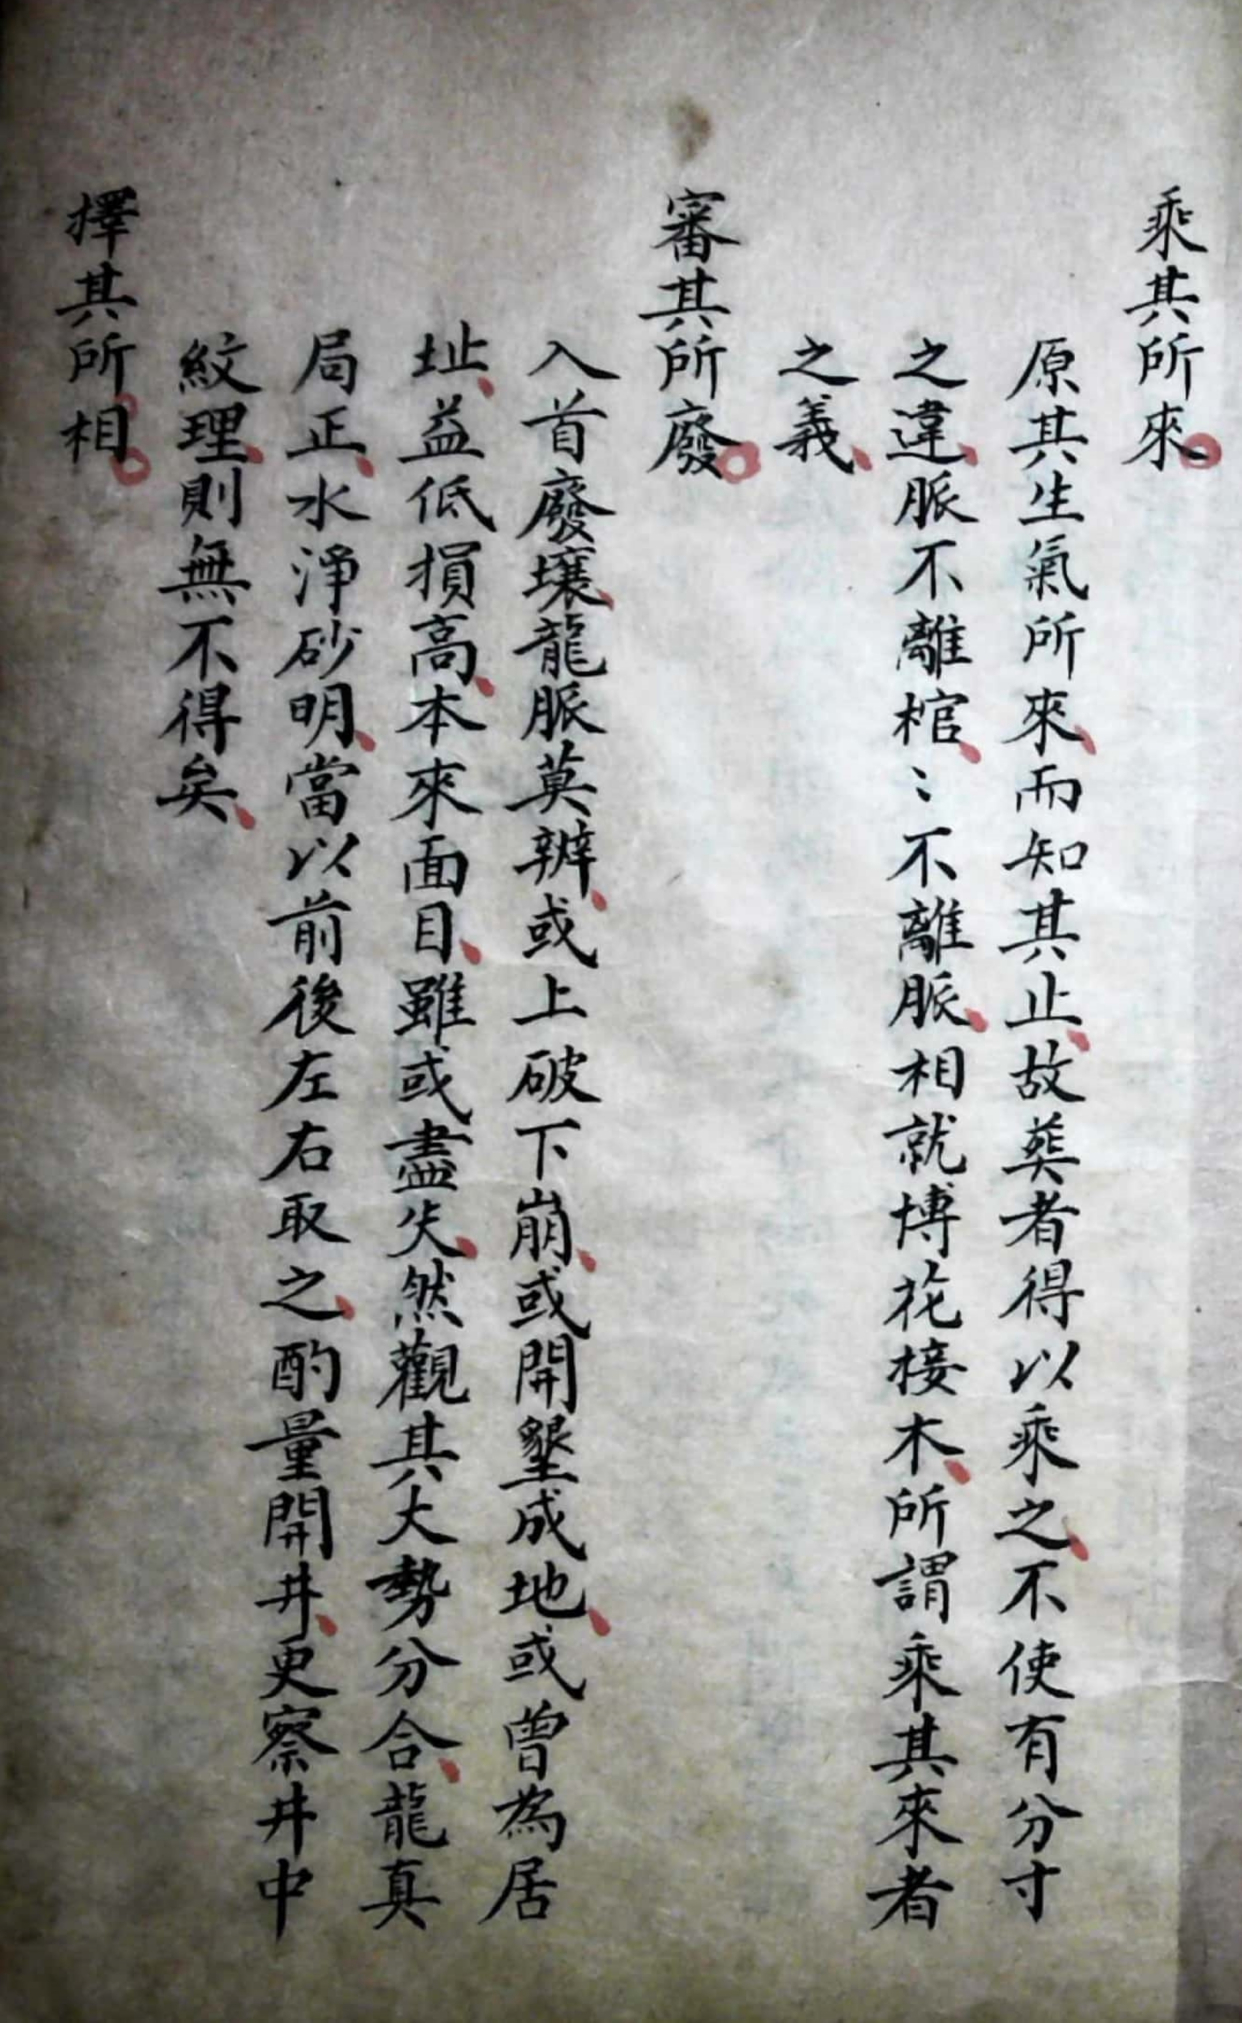 乘其所來。
原其生氣所來、而知其止、故葬者得以乘之、不使有分寸
之違、脈不離棺、〻不離脈、相就博花接木、所謂乘其來者
之義、
審其所廢。
入首廢壞、龍脈莫辨、或上破下崩、或開墾成地、或曾為居
址、益低損高、本來面目、雖或盡失、然觀其大勢分合、龍真
局正、水淨砂明、當以前後左右取之、酌量開井、更察井中
紋理、則無不得矣、
擇其所相。